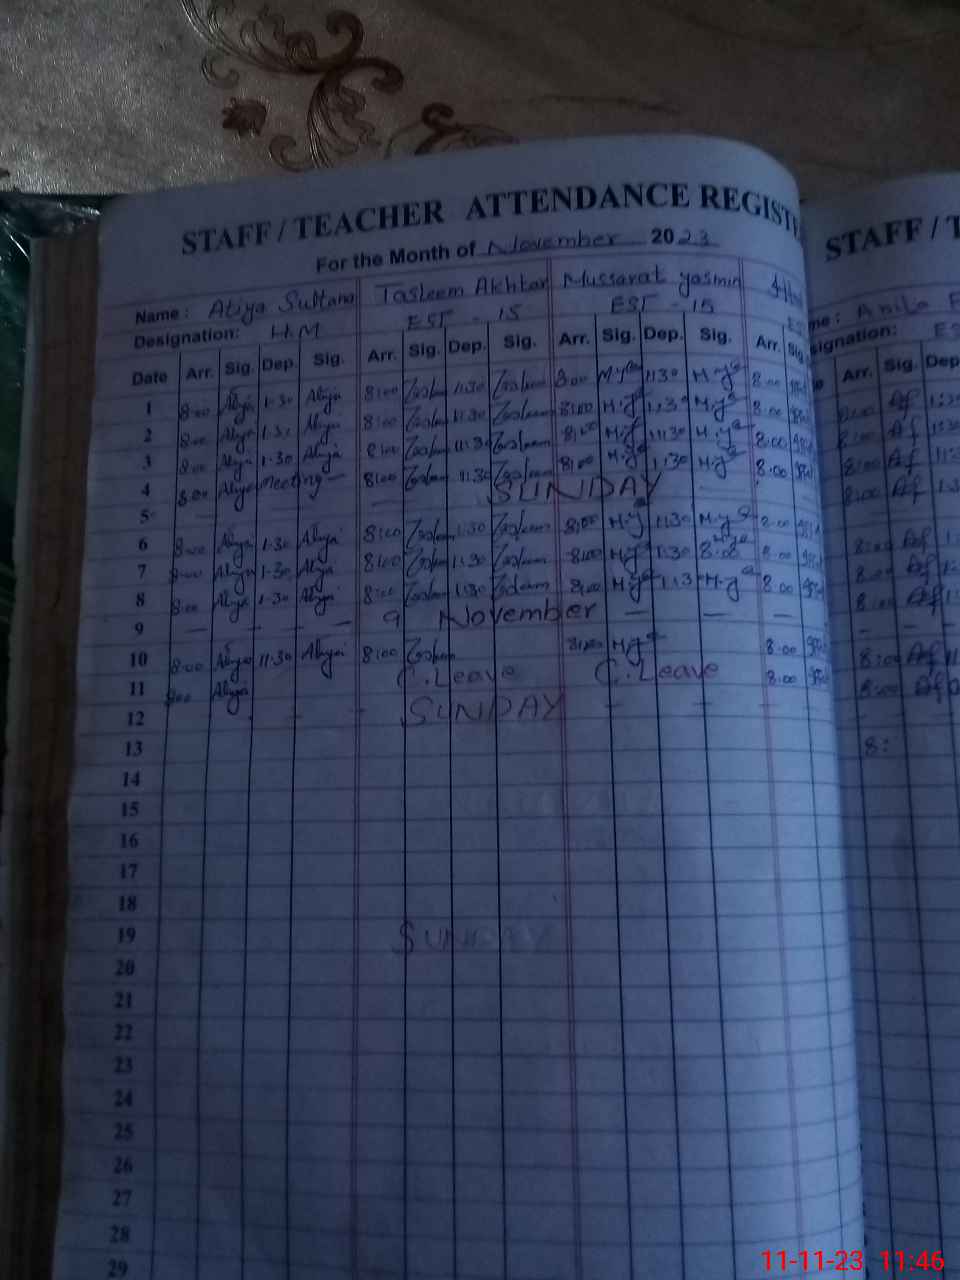 STAFF / TEACHER ATTENDANCE REGIST
For the Month of November 2023
Name : Atiya Sultana Tasleem Akhtar Mussarat Yasmin
Designation: H.M EST - 15 EST - 15
Date Arr. Sig. Dep. Sig. Arr. Sig. Dep. Sig. Arr. Sig. Dep. Sig. Arr. Sig.
1 8:00 Atiya 1:30 Atiya 8:00 Tasleem 1:30 Tasleem 8:00 M.Y 1:30 M.Y 8:00
2 8:00 Atiya 1:30 Atiya 8:00 Tasleem 1:30 Tasleem 8:00 M.Y 1:30 M.Y 8:00
3 8:00 Atiya 1:30 Atiya 8:00 Tasleem 1:30 Tasleem 8:00 M.Y 1:30 M.Y 8:00
4 8:00 Atiya Meeting 8:00 Tasleem 1:30 Tasleem 8:00 M.Y 1:30 M.Y 8:00
5 SUNDAY
6 8:00 Atiya 1:30 Atiya 8:00 Tasleem 1:30 Tasleem 8:00 M.Y 1:30 M.Y 8:00
7 8:00 Atiya 1:30 Atiya 8:00 Tasleem 1:30 Tasleem 8:00 M.Y 1:30 8:00 8:00
8 8:00 Atiya 1:30 Atiya 8:00 Tasleem 1:30 Tasleem 8:00 M.Y 1:30 M.Y 8:00
9 — — — — 9 November — — —
10 8:00 Atiya 11:30 Atiya 8:00 Tasleem 8:00 M.Y 8:00
11 8:00 Atiya C.Leave C.Leave 8:00
12 SUNDAY
13
14
15
16
17
18
19 SUNDAY
20
21
22
23
24
25
26
27
28
29
STAFF / T
me : Anila
signation: ES
Arr. Sig. Dep
8:00 Af
8:00 Af
8:00 Af
8:00 Af
8:00 Af
8:00 Af
8:00 Af
8:00 Af
8:00 Af
8:
11-11-23 11:46